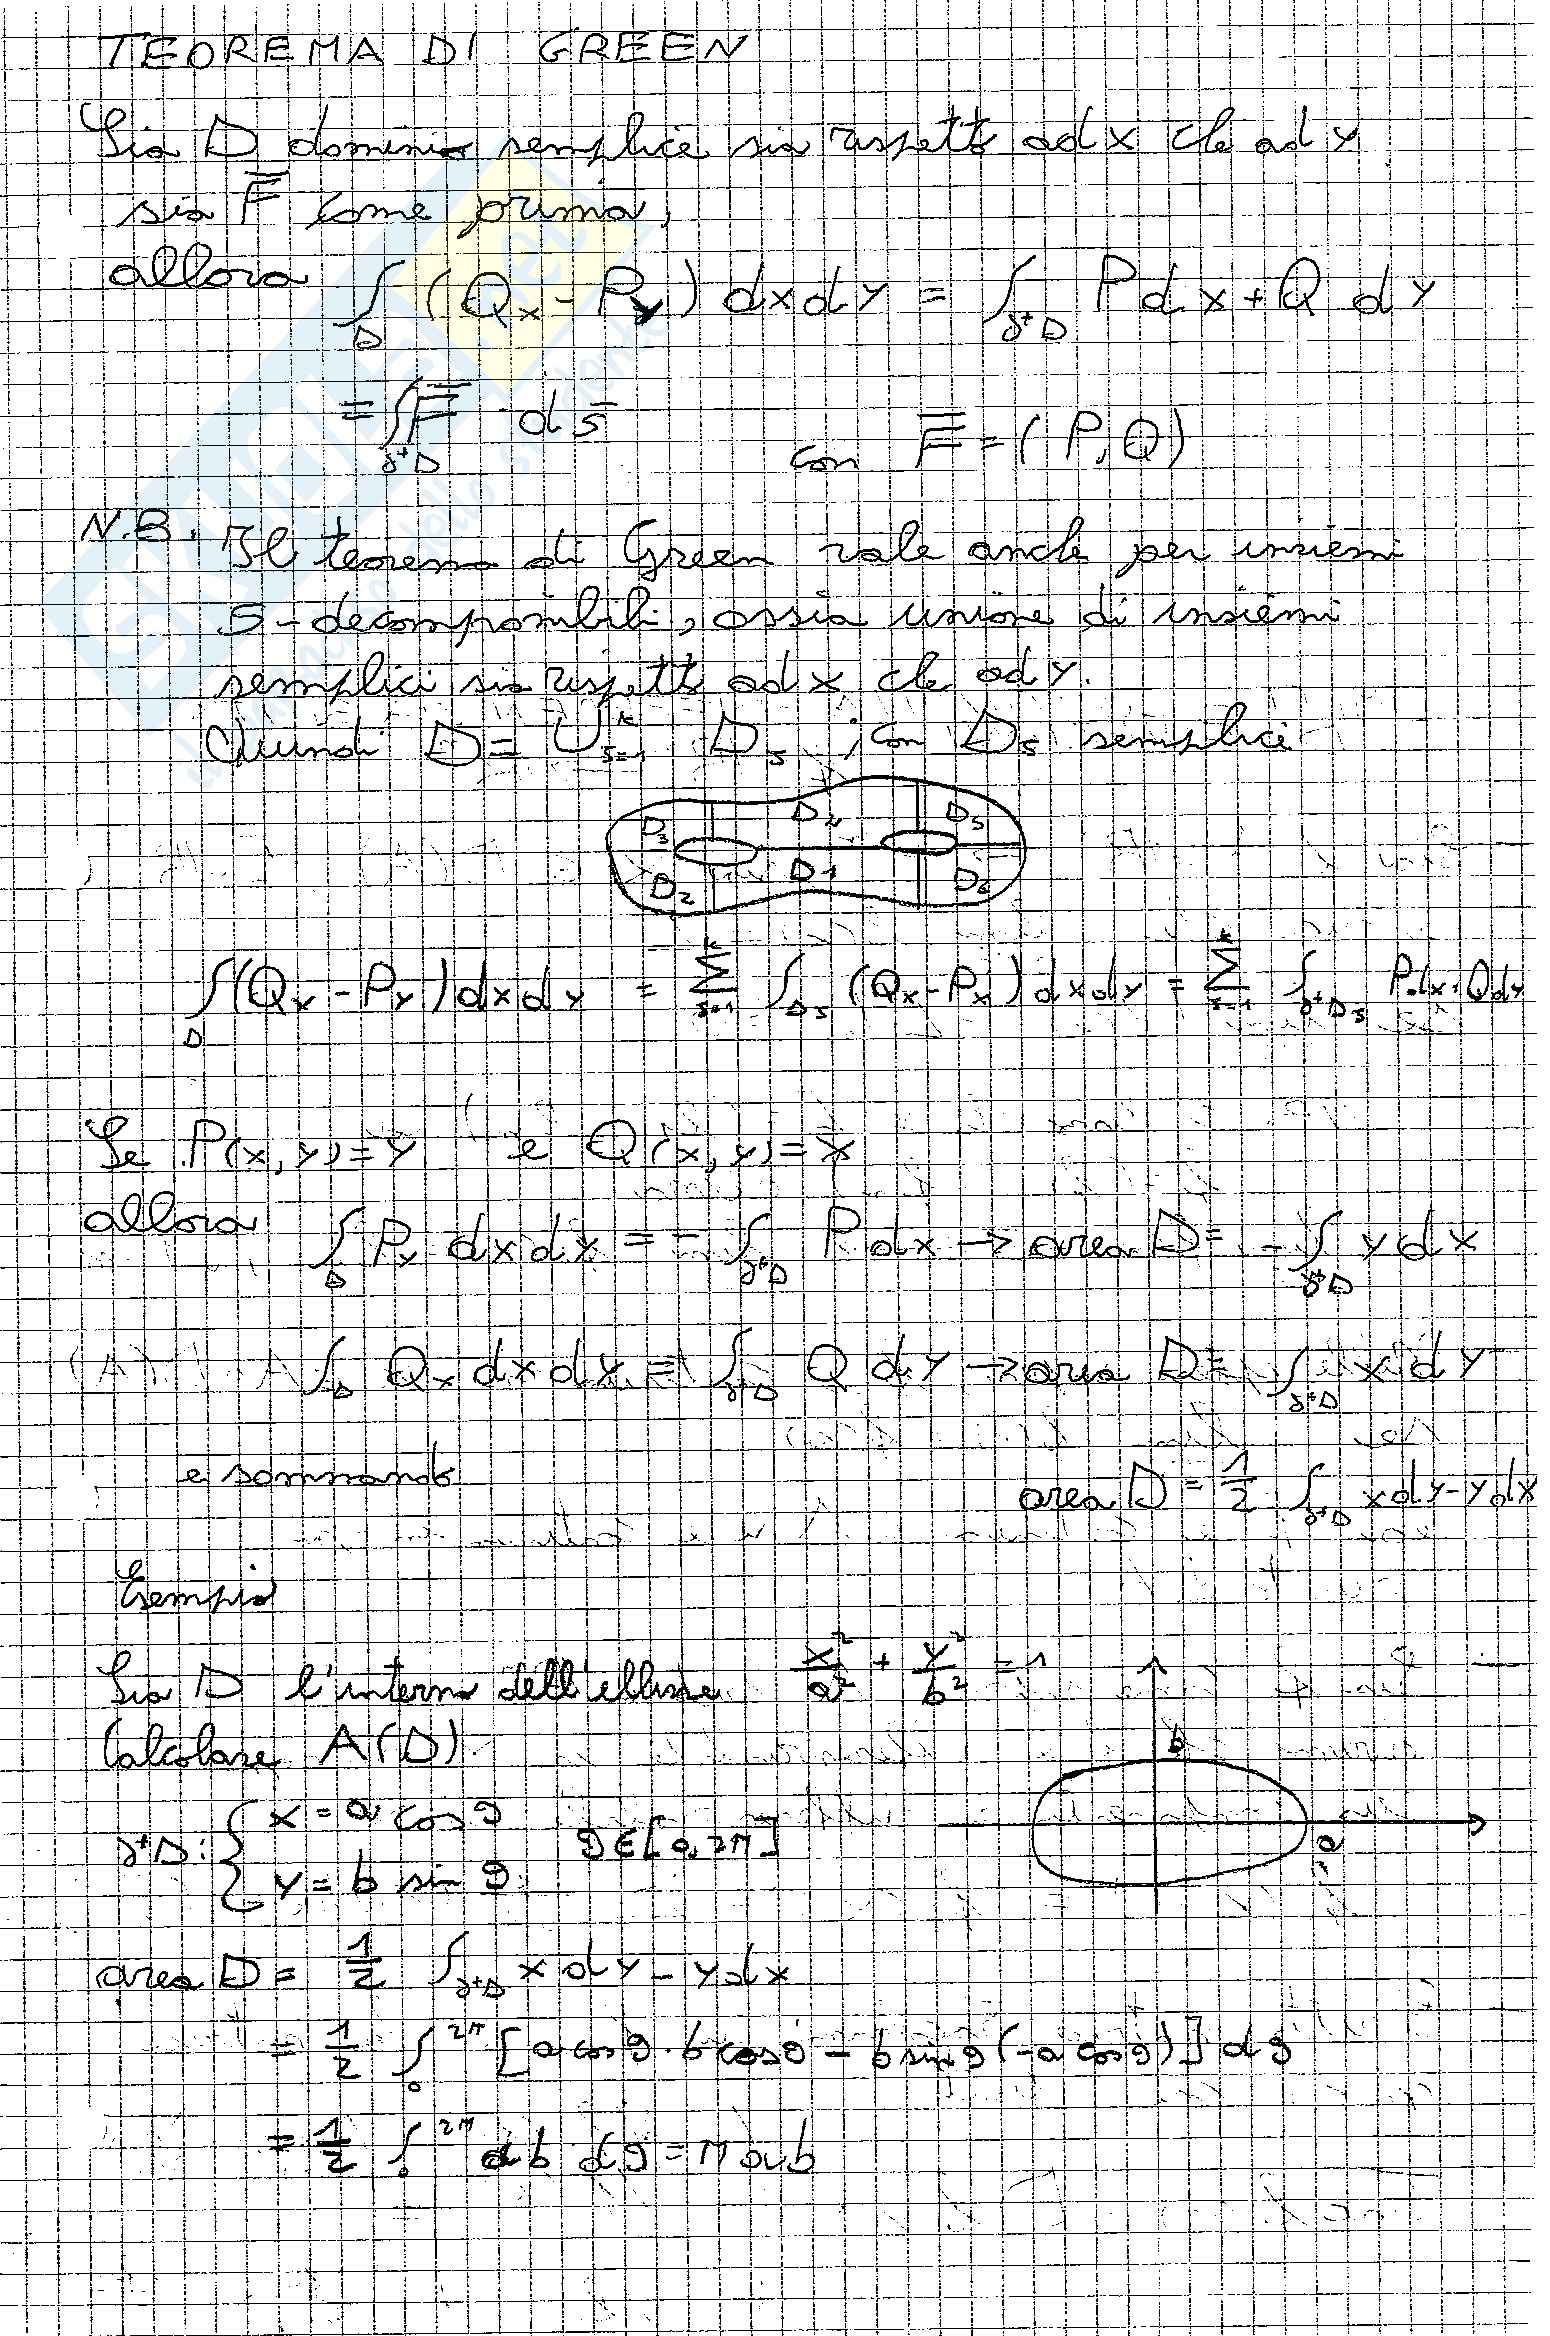 TEOREMA DI GREEN
Sia D dominio semplice sia rispetto ad x che ad y
sia F̅ come prima,
allora ∫_D (Q_x - P_y) dx dy = ∫_{∂⁺D} P dx + Q dy
= ∫_{∂⁺D} F̅ · ds̅ con F̅ = (P, Q)
N.B. Il teorema di Green vale anche per insiemi
S-decomponibili, ossia unione di insiemi
semplici sia rispetto ad x che ad y.
Quindi D = ∪_{s=1}^k D_s, con D_s semplici
D_3 D_4 D_5
D_2 D_1 D_6
∫_D (Q_x - P_y) dx dy = Σ_{s=1}^k ∫_{D_s} (Q_x - P_x) dx dy = Σ_{s=1}^k ∫_{∂⁺D_s} P dx + Q dy
Se P(x, y) = y e Q(x, y) = x
allora ∫_D P_y dx dx = - ∫_{∂⁺D} P dx → area D = - ∫_{∂⁺D} y dx
∫_D Q_x dx dy = ∫_{∂⁺D} Q dy → area D = ∫_{∂⁺D} x dy
e sommando
area D = 1/2 ∫_{∂⁺D} x dy - y dx
Esempio
Sia D l'interno dell'ellisse x²/a² + y²/b² = 1
Calcolare A(D)
b
a
∂⁺D: { x = a cos ϑ
y = b sin ϑ ϑ ∈ [0, 2π]
area D = 1/2 ∫_{∂⁺D} x dy - y dx
= 1/2 ∫_0^{2π} [a cos ϑ · b cos ϑ - b sin ϑ (-a cos ϑ)] dϑ
= 1/2 ∫_0^{2π} ab dϑ = π a b